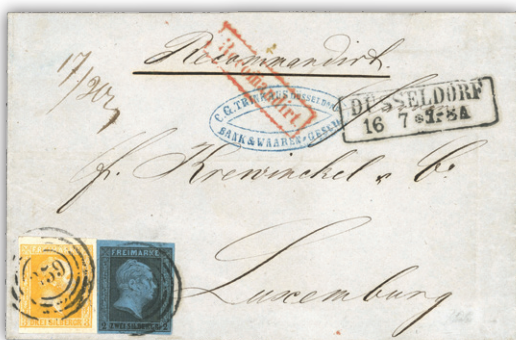 Recommandirt.
17/
Recommandirt
C.G. TRINKAUS DUSSELDORF
BANK & WAAREN-GESCH
DÜSSELDORF
16 7 * 7-8A
fr. Krewinckel & Co.
Luxemburg
FREIMARKE
2 ZWEI SILBERGR. 2